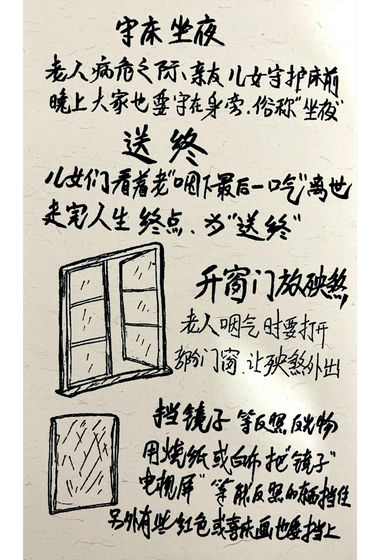 守床坐夜
老人病危之际、亲友儿女守护床前
晚上大家也要守在身旁.俗称"坐夜"
送终
儿女们看着老"咽下最后一口气"离世
走完人生终点.为"送终"
开窗门放殃煞
老人咽气时要打开
部分门窗.让殃煞外出
挡镜子等反照反光物
用烧纸或白布把"镜子"
电视屏"等能反照的东西挡住
另外有些红色或喜庆画也要挡上